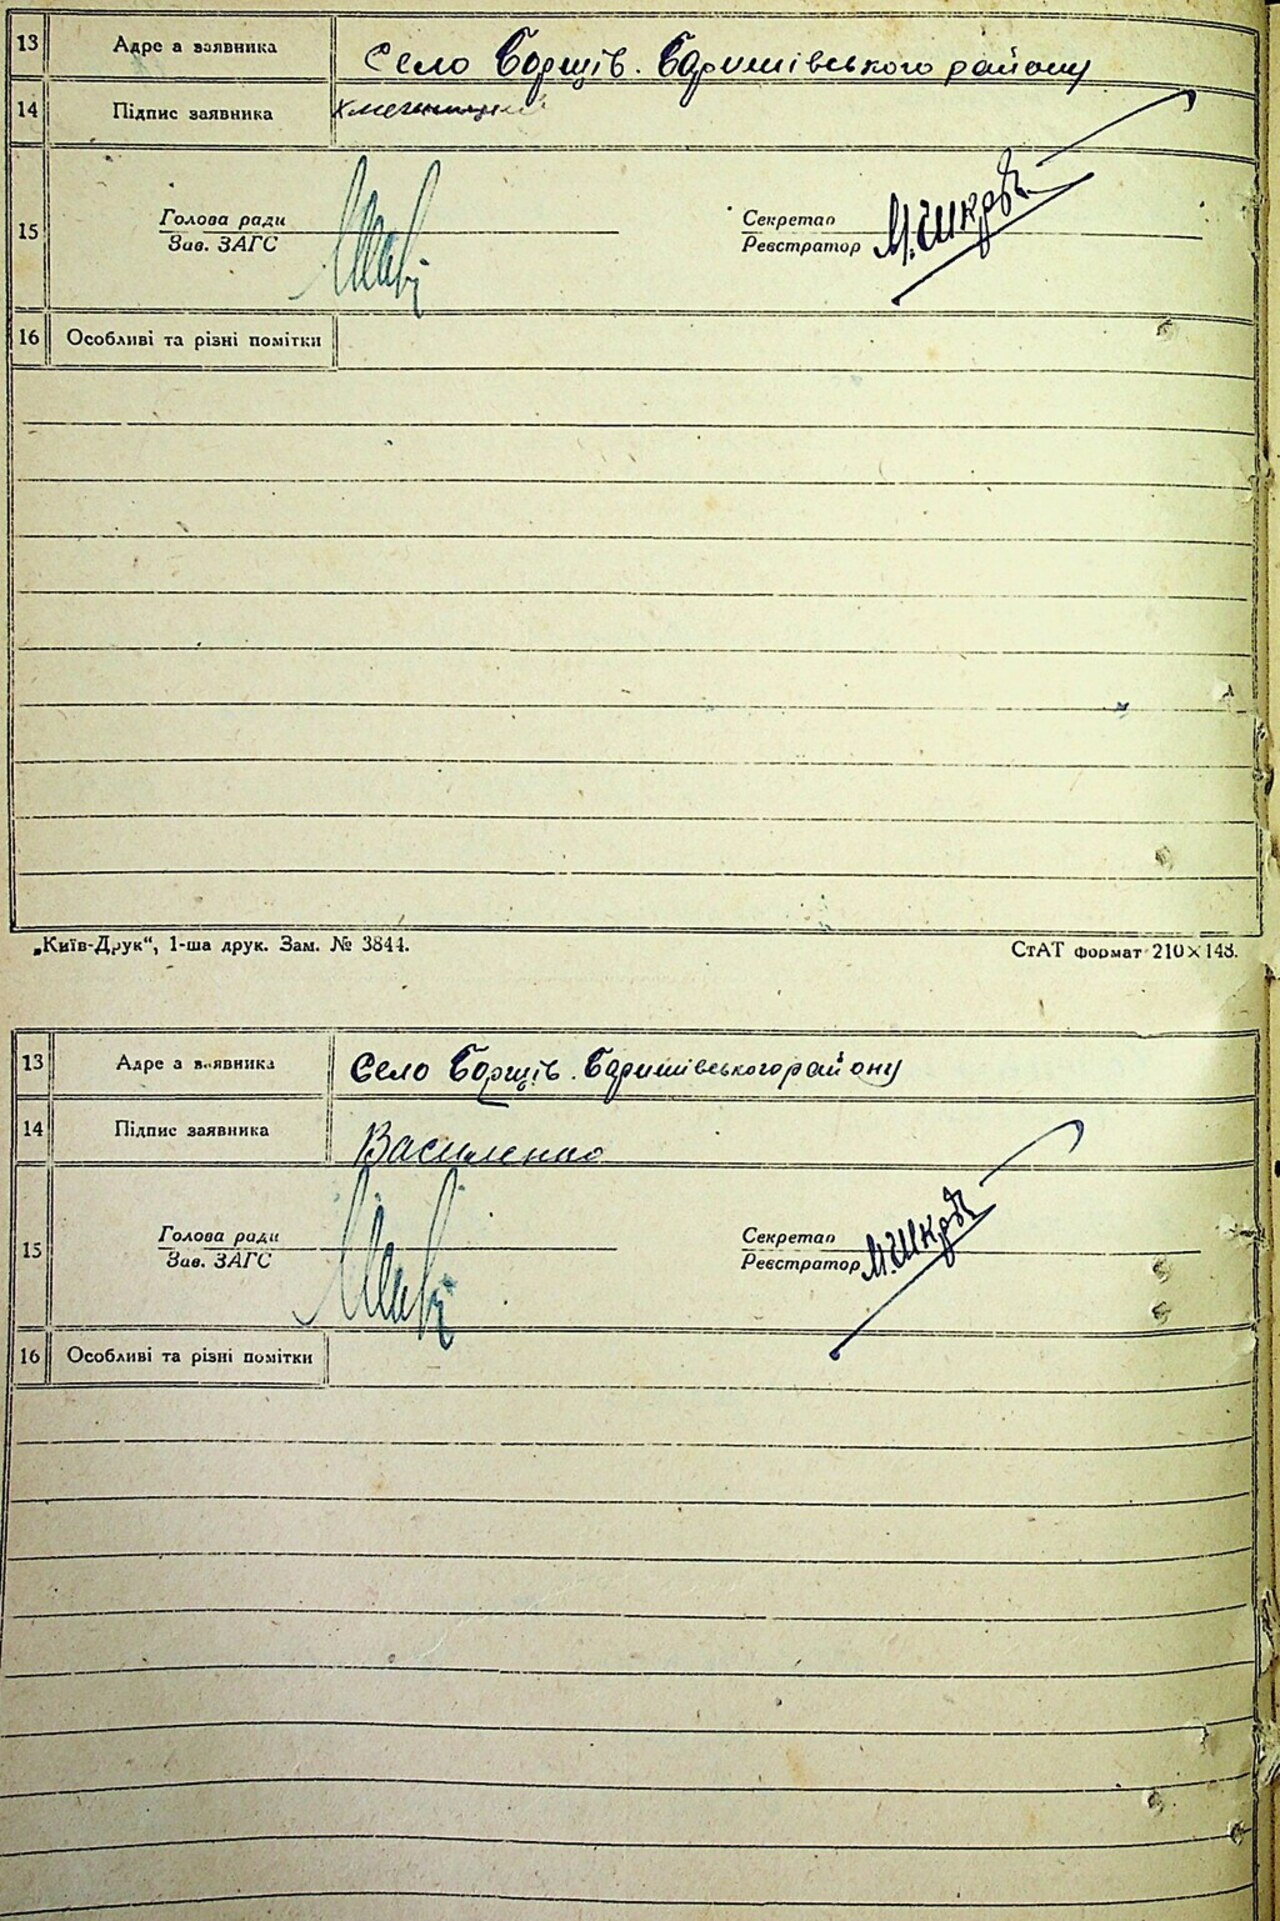 13 Адре а заявника Село Борщів. Баришівського району
14 Підпис заявника
15 Голова ради Секретар
Зав. ЗАГС Реєстратор
16 Особливі та різні помітки
„Київ-Друк“, 1-ша друк. Зам. № 3844. СтАТ формат 210×148.
13 Адре а заявника Село Борщів. Баришівського району
14 Підпис заявника Василенко
15 Голова ради Секретар
Зав. ЗАГС Реєстратор
16 Особливі та різні помітки